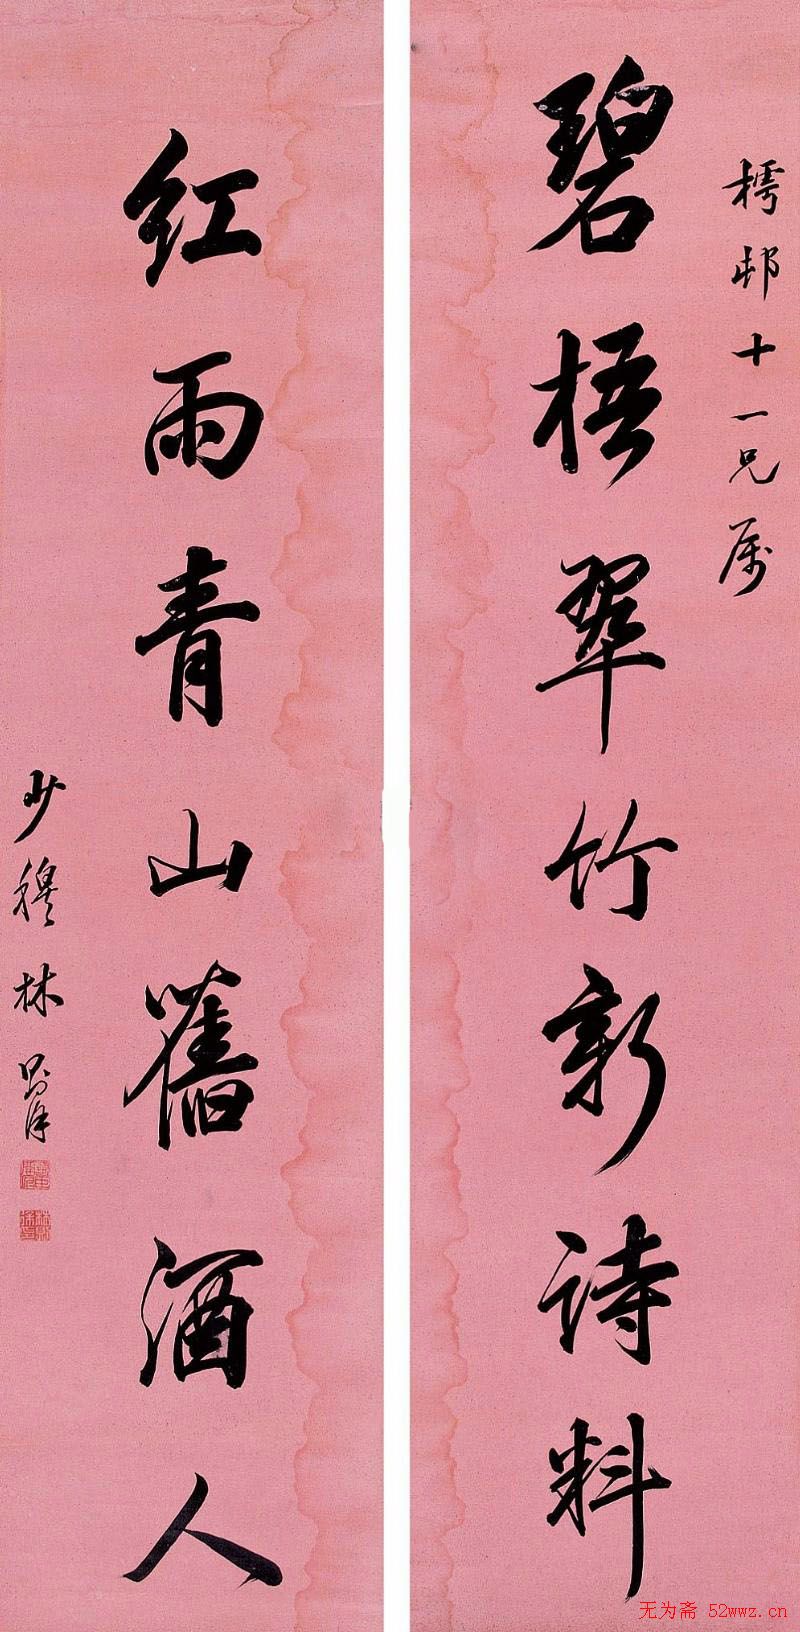 樗邨十一兄属
碧梧翠竹新诗料
红雨青山舊酒人
少穆林则徐
无为斋 52wwz.cn